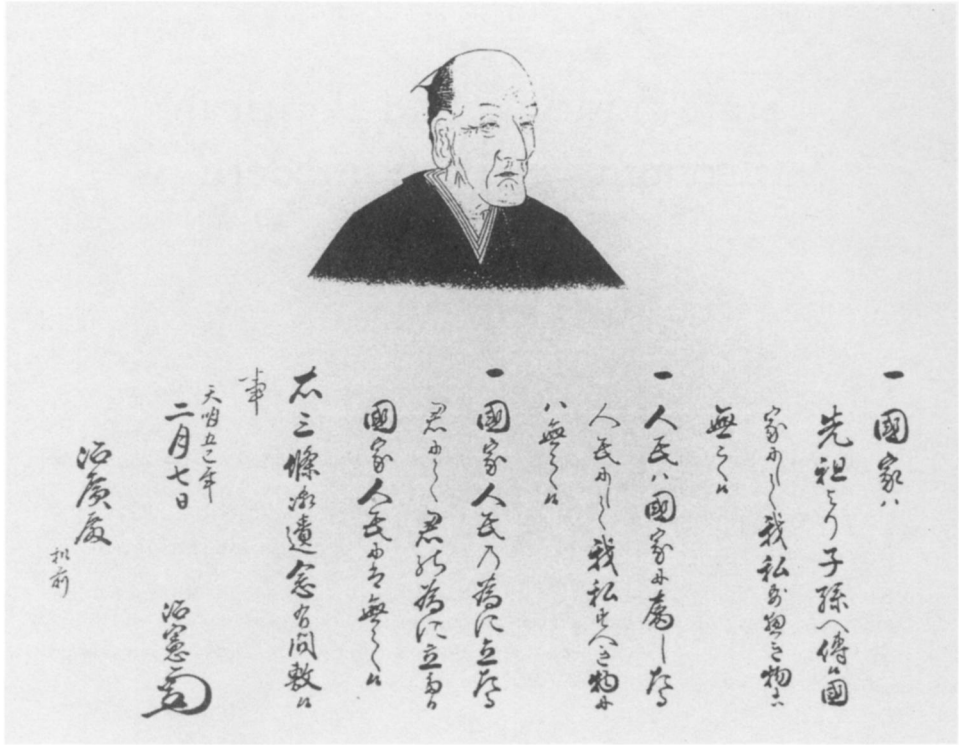 一 國家ハ
先祖より子孫へ傳候國
家にして我私すへき物にハ
無之候
一 人民ハ國家に属したる
人民にして我私すへき物に
ハ無之候
一 國家人民の為に立たる
君にし君の為に立たる
國家人民にハ無之候
右三條御遺念有間敷候
事
天明五巳年
二月七日 治憲
治廣殿 机前